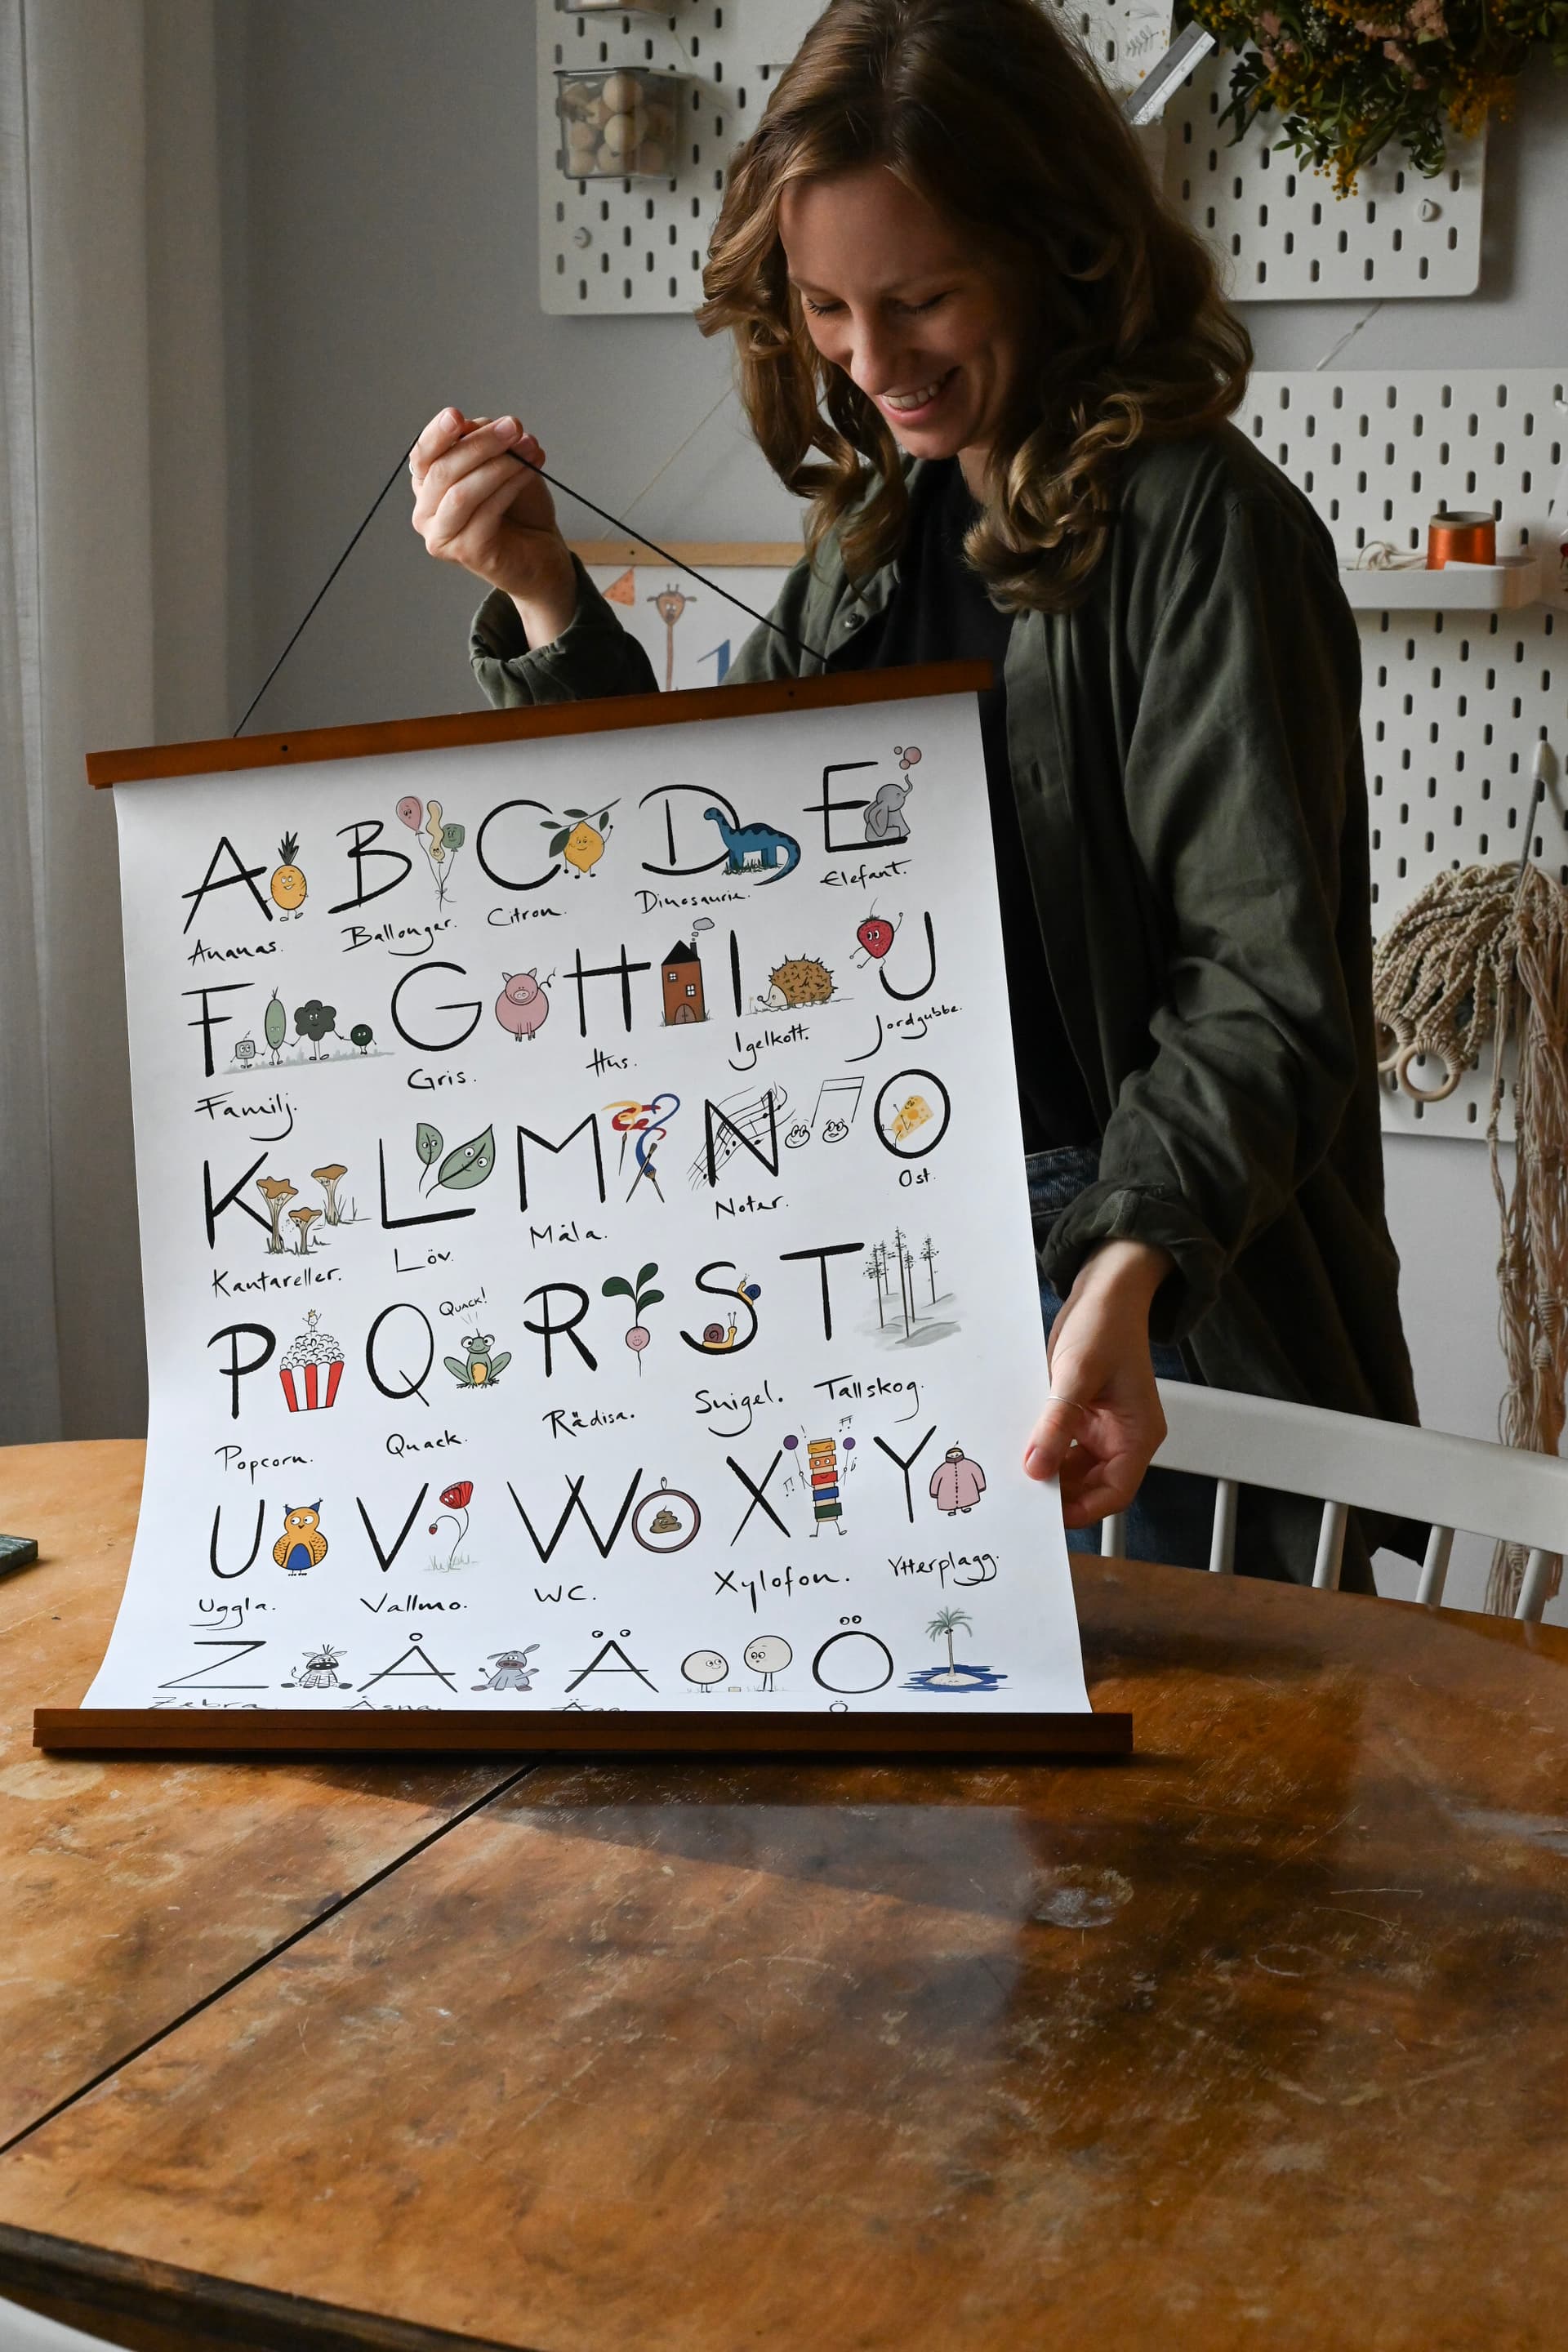 A B C D E
Ananas. Ballonger. Citron. Dinosaurie. Elefant.
F G H I J
Familj. Gris. Hus. Igelkott. Jordgubbe.
K L M N O
Kantareller. Löv. Måla. Noter. Ost.
QUACK!
P Q R S T
Popcorn. Quack. Rädisa. Snigel. Tallskog.
U V W X Y
Uggla. Vallmo. WC. Xylofon. Ytterplagg.
Z Å Ä Ö
Zebra. Åsna. Ägg. Ö
1